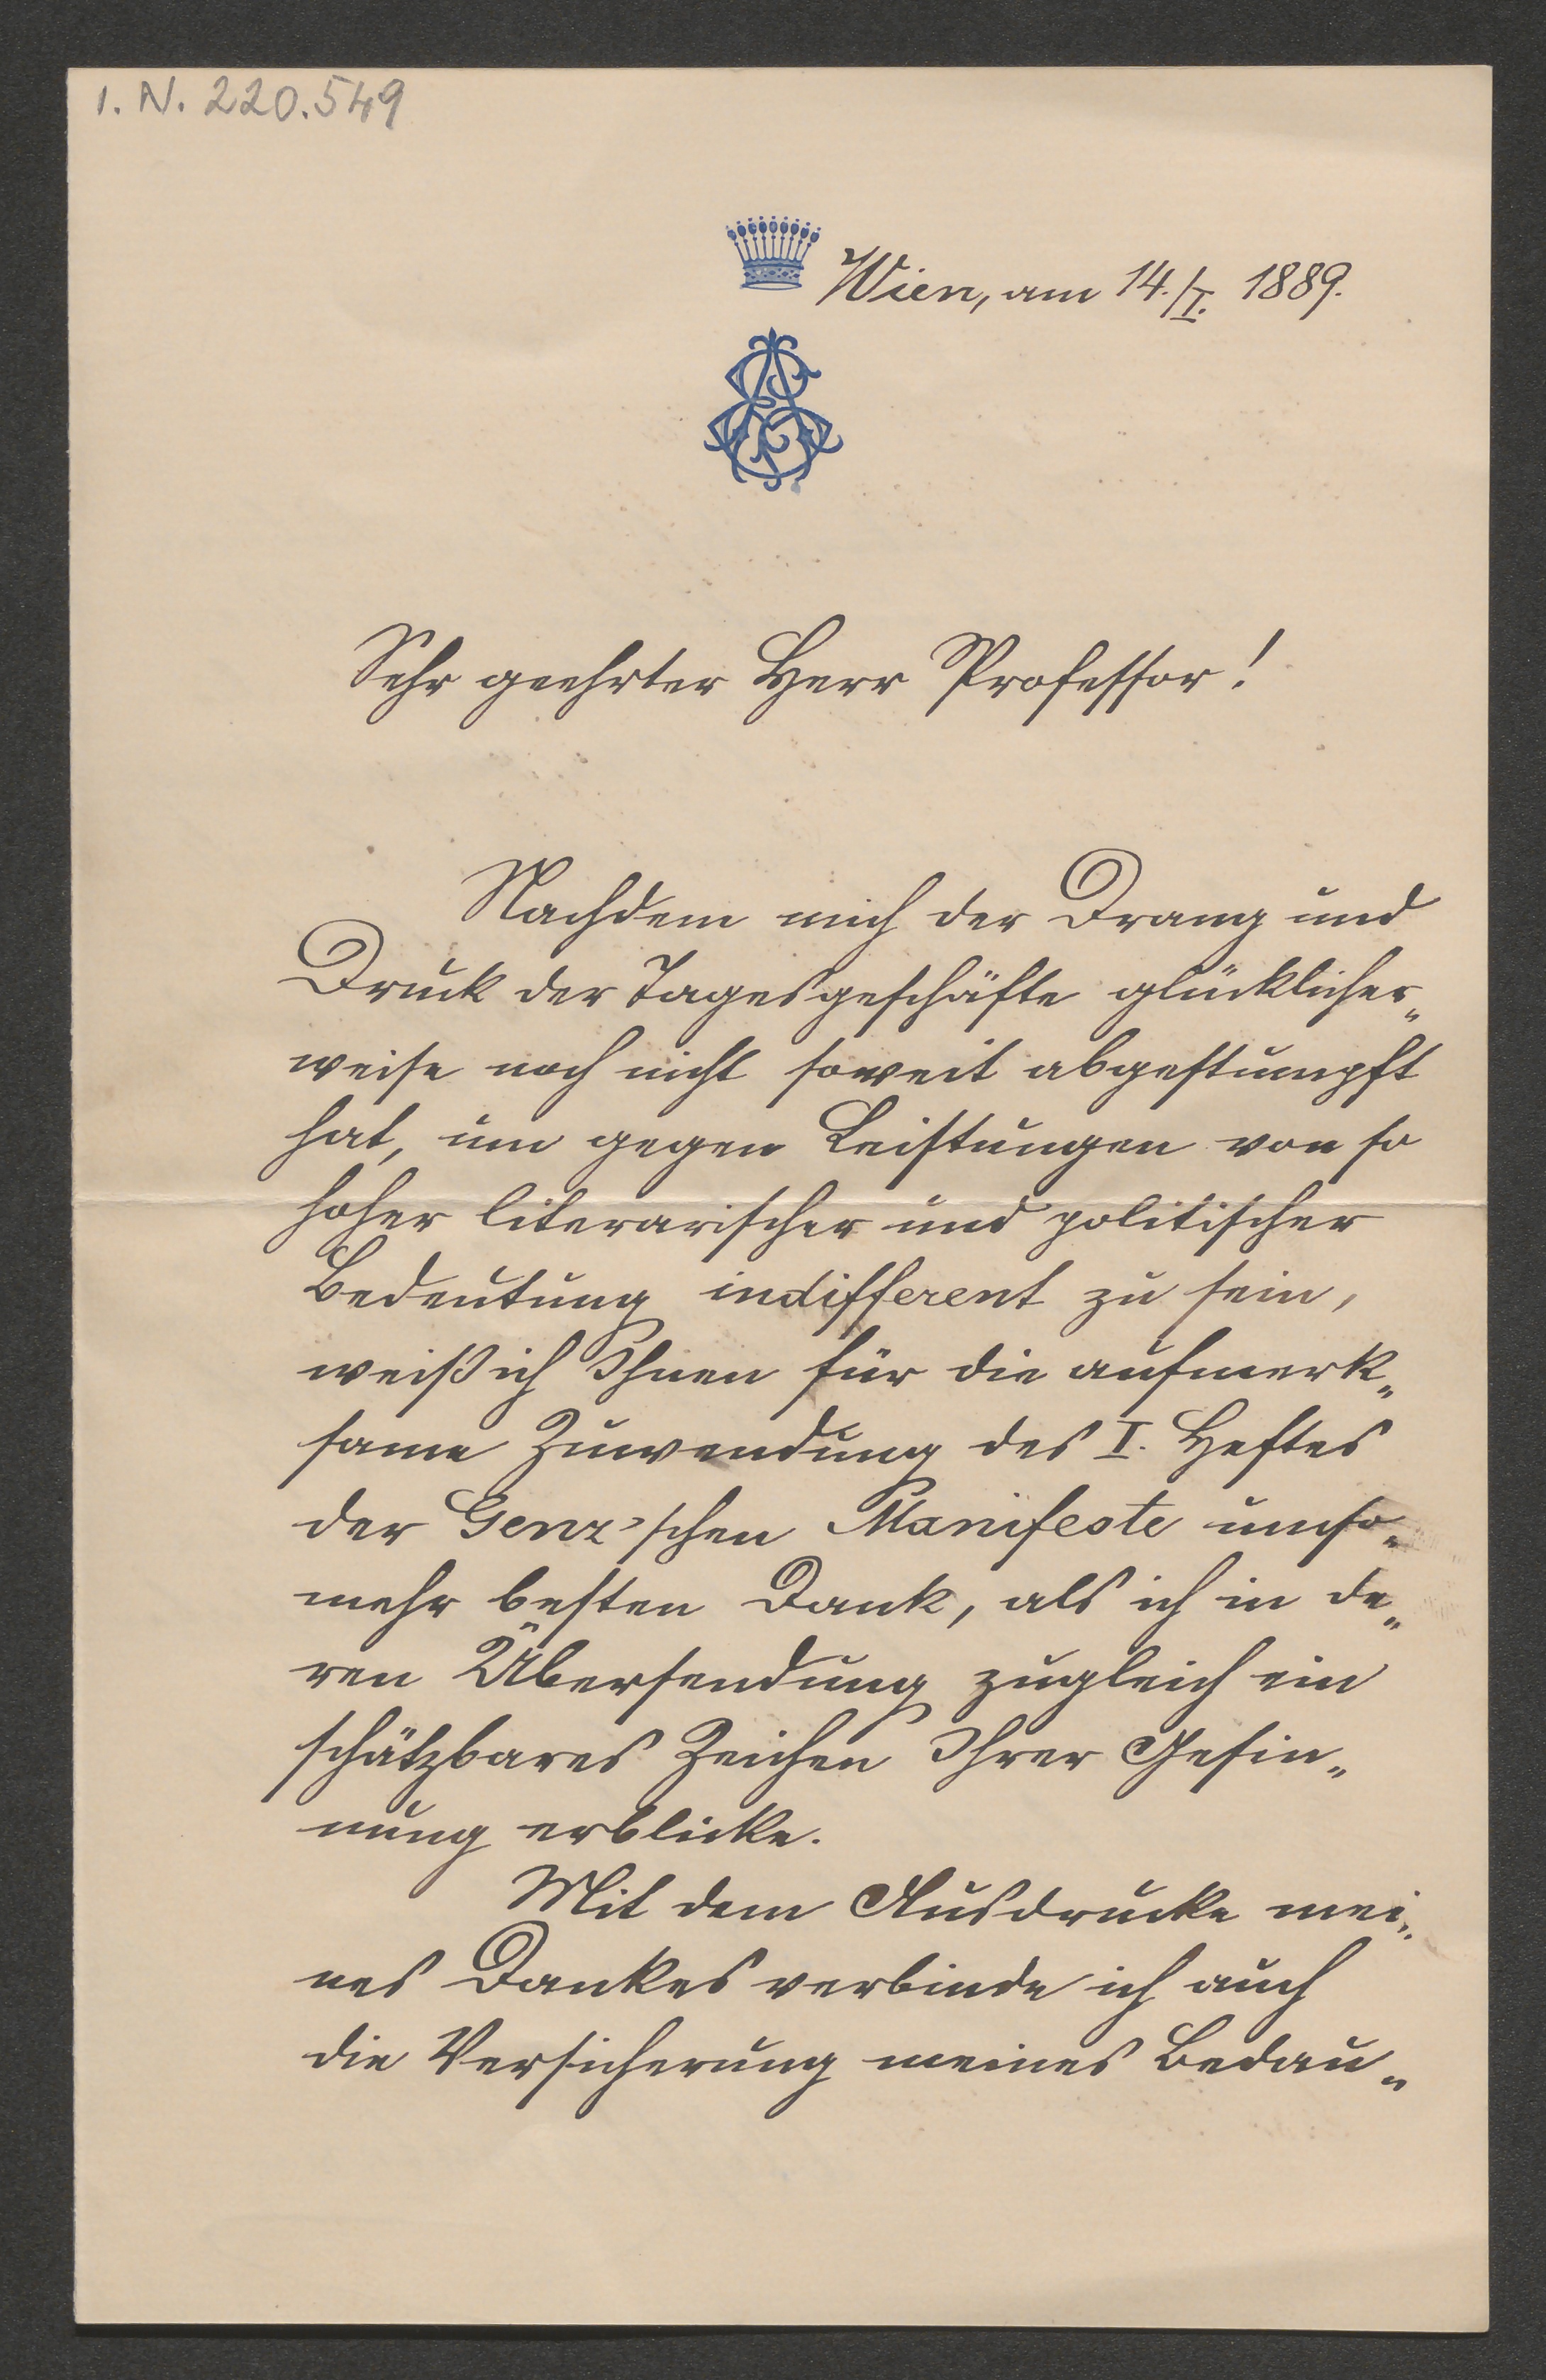 I. N. 220.549
Wien, am 14./I. 1889.
Sehr geehrter Herr Professor!
Nachdem mich der Drang und
Druck der Tagesgeschäfte glücklicher„
weise noch nicht soweit abgestumpft
hat, um gegen Leistungen von so
hoher literarischer und politischer
Bedeutung indifferent zu sein,
weiß ich Ihnen für die aufmerk„
same Zuwendung des I. Heftes
der Genz'schen Manifeste umso„
mehr besten Dank, als ich in de„
ren Übersendung zugleich ein
schätzbares Zeichen Ihrer Gesin„
nung erblicke.
Mit dem Ausdrucke mei„
nes Dankes verbinde ich auch
die Versicherung meines Bedau„